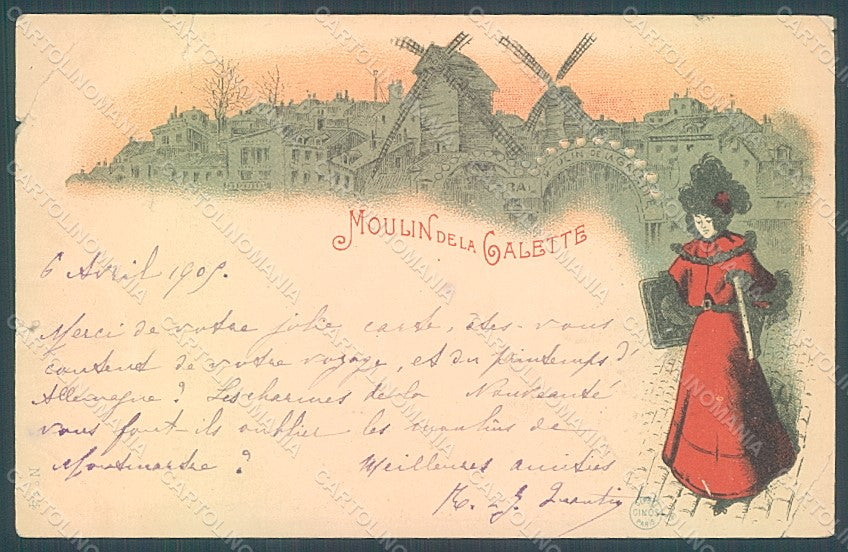 BAL
MOULIN DE LA GALETTE
MOULIN DE LA GALETTE
6 Avril 1905.
Merci de votre jolie carte, êtes-vous
content de votre voyage, et du printemps d'
Allemagne ? Les charmes de la Nouveauté
vous font-ils oublier les moulins de
Montmartre ? Meilleures amitiés
CINOS
PARIS
CARTOLINOMANIA